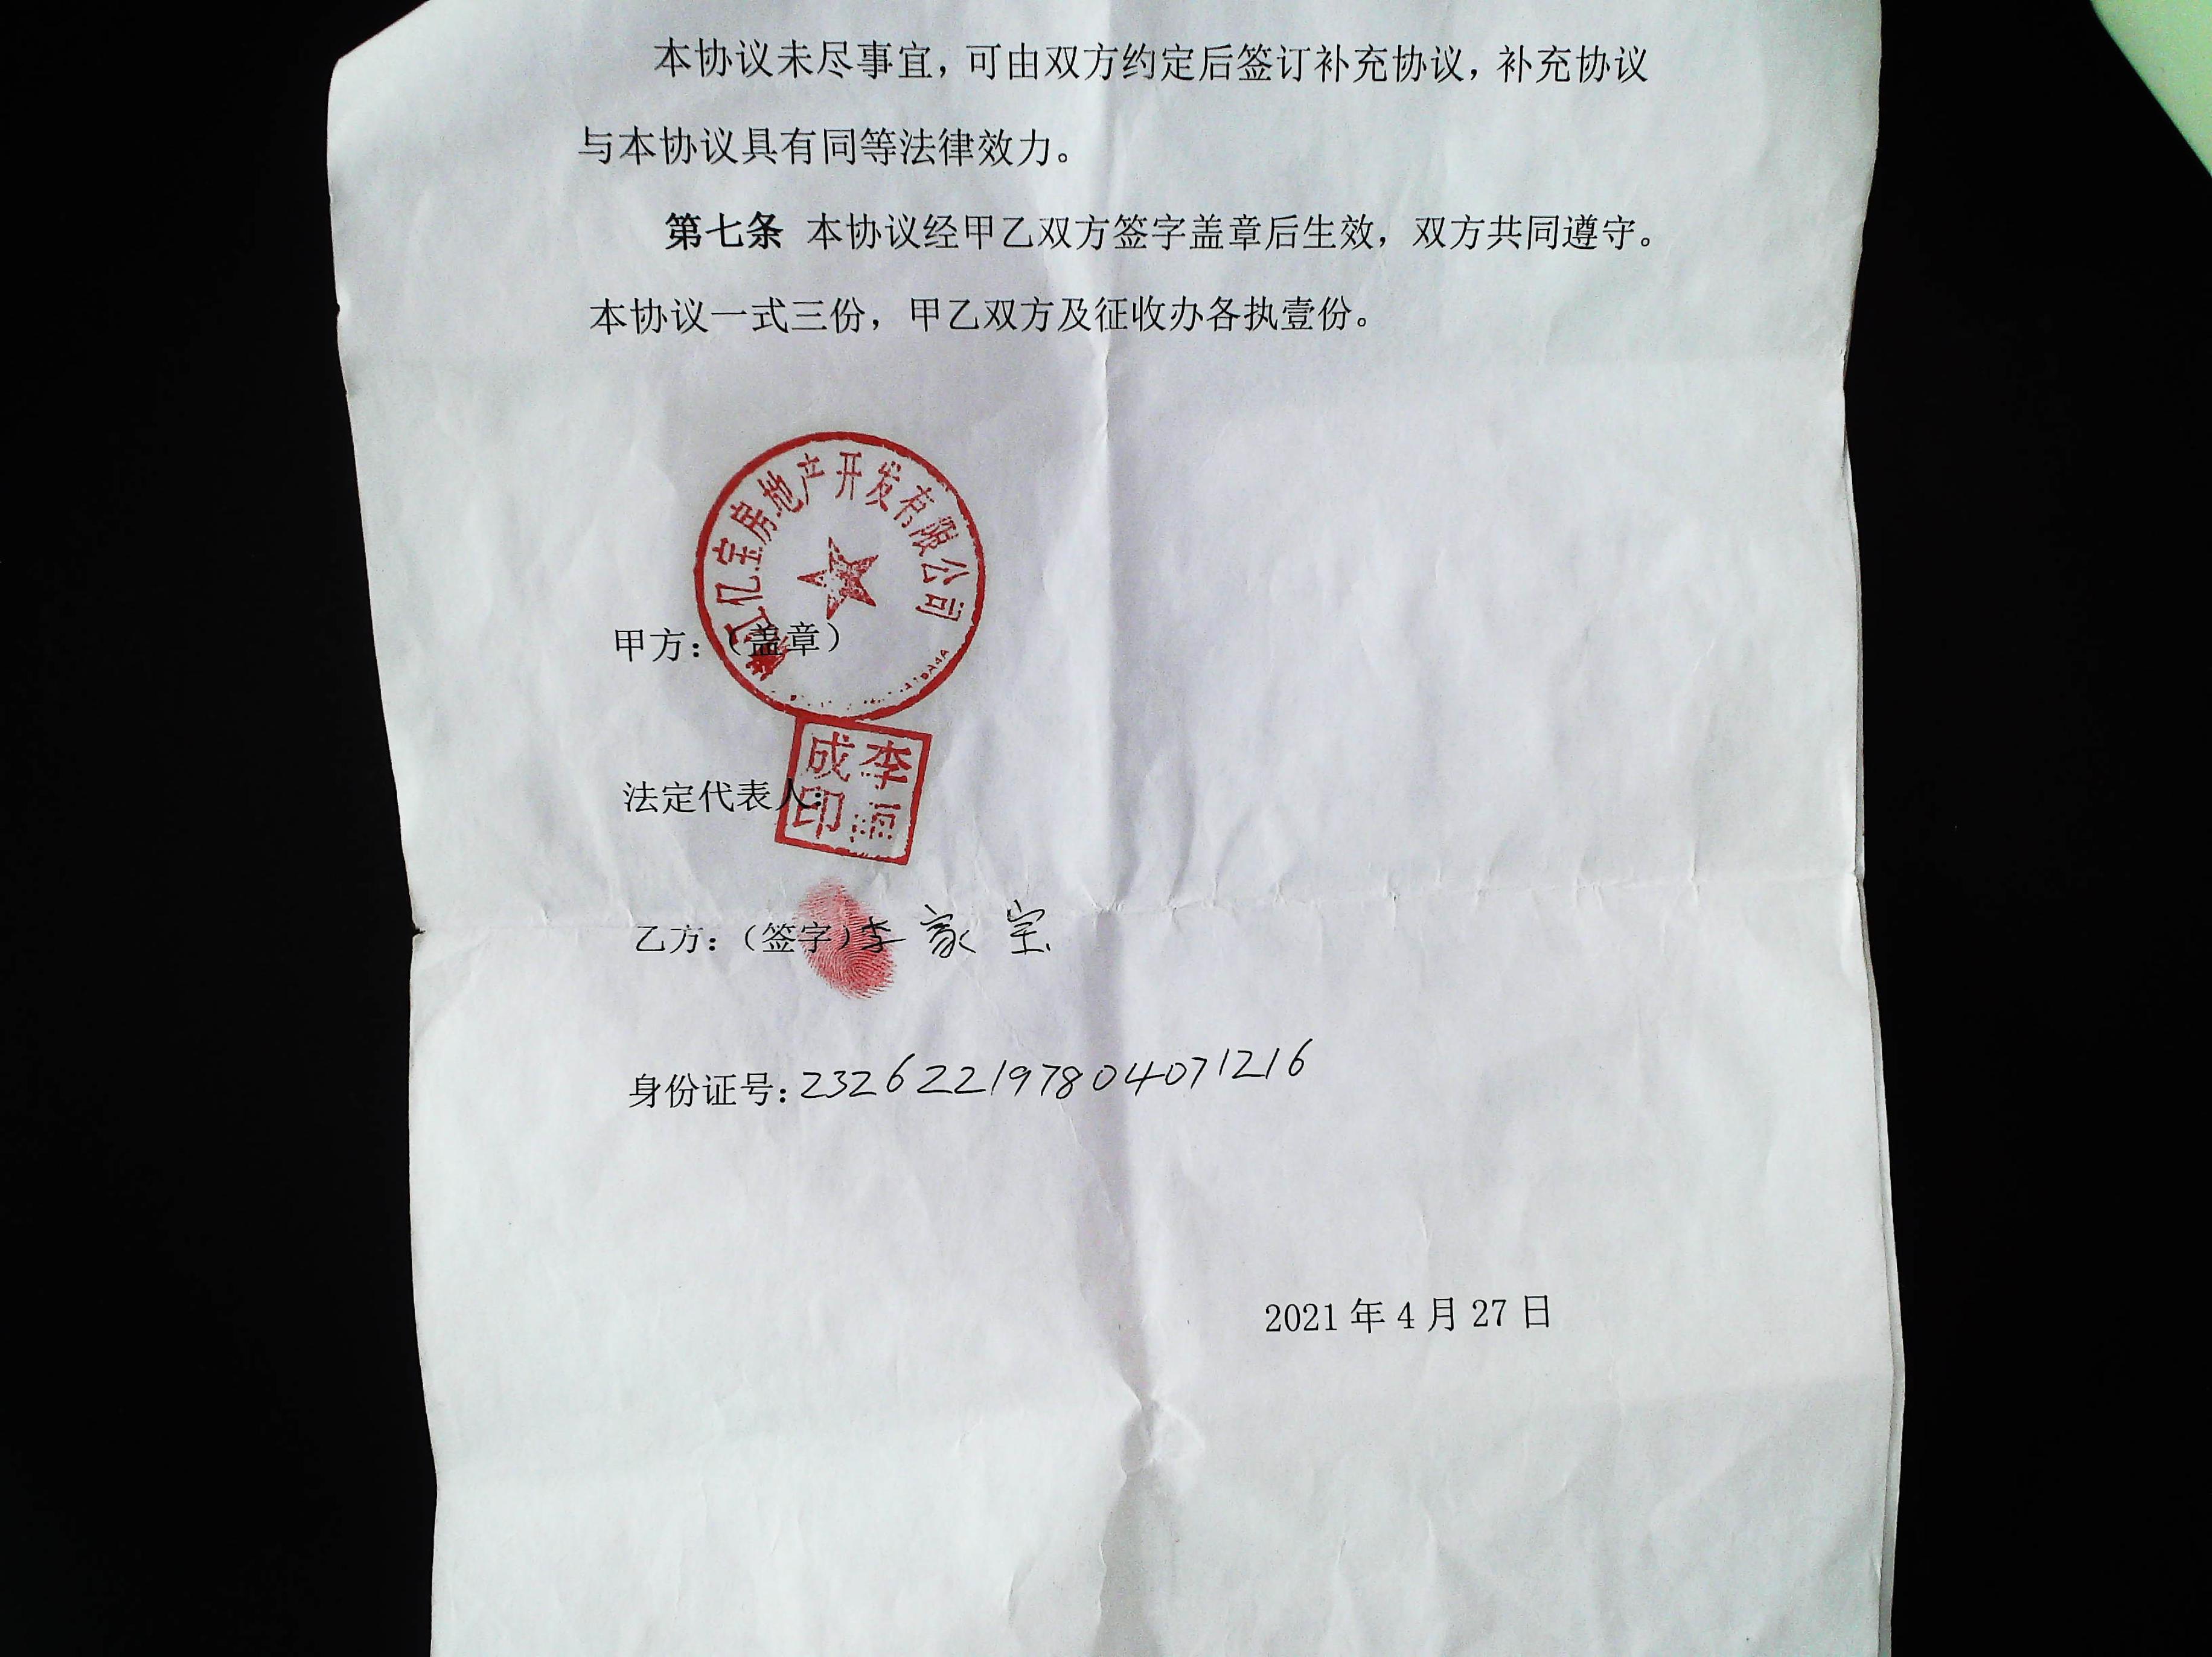 本协议未尽事宜，可由双方约定后签订补充协议，补充协议
与本协议具有同等法律效力。
第七条 本协议经甲乙双方签字盖章后生效，双方共同遵守。
本协议一式三份，甲乙双方及征收办各执壹份。
江亿宝房地产开发有限公司
甲方：（盖章）
李
成印
法定代表人：
乙方：（签字）李家宝
身份证号：232622197804071216
2021年4月27日